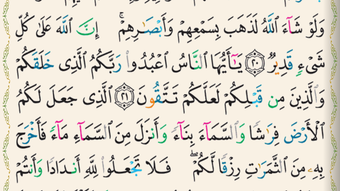 وَلَوْ شَآءَ ٱللَّهُ لَذَهَبَ بِسَمْعِهِمْ وَأَبْصَٰرِهِمْ ۚ إِنَّ ٱللَّهَ عَلَىٰ كُلِّ
شَىْءٍ قَدِيرٌ ٢٠ يَٰٓأَيُّهَا ٱلنَّاسُ ٱعْبُدُوا۟ رَبَّكُمُ ٱلَّذِى خَلَقَكُمْ
وَٱلَّذِينَ مِن قَبْلِكُمْ لَعَلَّكُمْ تَتَّقُونَ ٢١ ٱلَّذِى جَعَلَ لَكُمُ
ٱلْأَرْضَ فِرَٰشًا وَٱلسَّمَآءَ بِنَآءً وَأَنزَلَ مِنَ ٱلسَّمَآءِ مَآءً فَأَخْرَجَ
بِهِۦ مِنَ ٱلثَّمَرَٰتِ رِزْقًا لَّكُمْ ۖ فَلَا تَجْعَلُوا۟ لِلَّهِ أَندَادًا وَأَنتُمْ